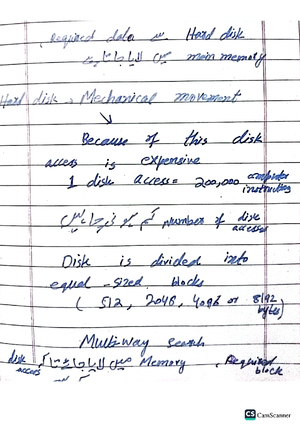 Required data سے Hard disk
میں لایا جاتا ہے main memory
Hard disk → Mechanical movement
Because of this disk
access is expensive
1 disk access = 200,000 computer instructions
کم ہو Number of disk access
Disk is divided into
equal-sized blocks
( 512, 2048, 4096 or 8192 bytes)
Multi-way search
disk access میں لایا جائے تاکہ Memory Required block
CS CamScanner